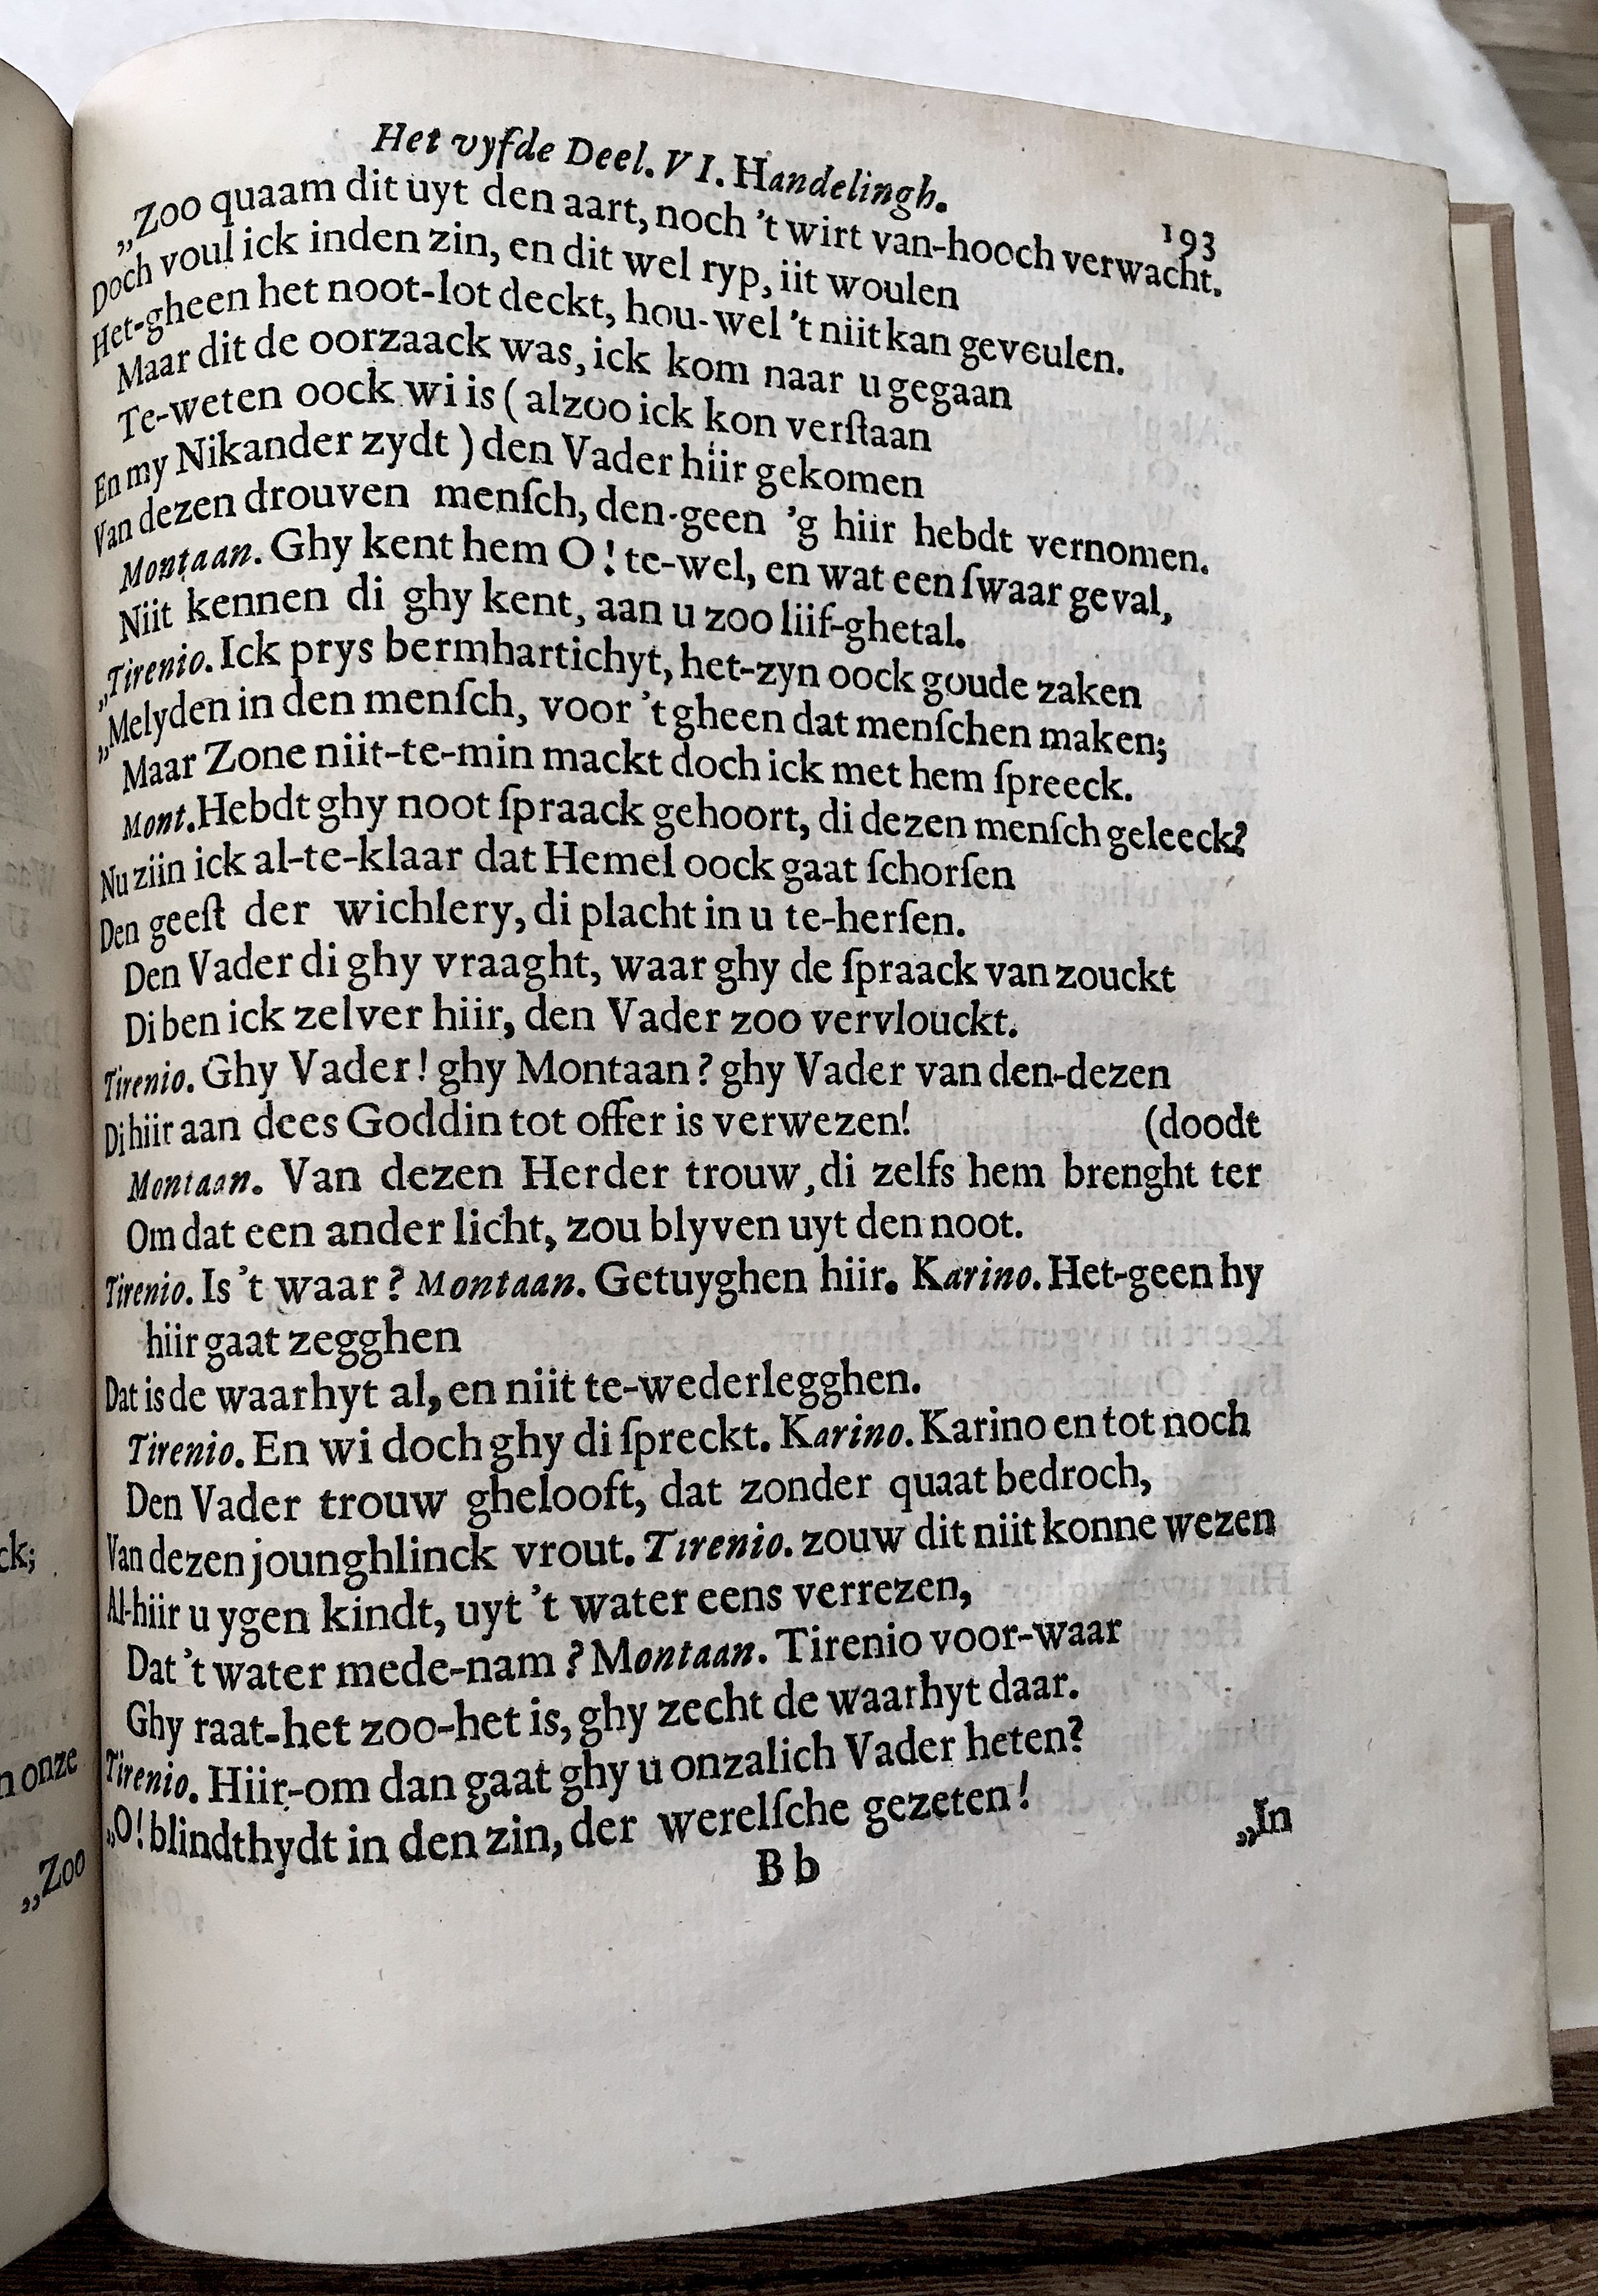 Het vyfde Deel. VI. Handelingh.
193
„Zoo quaam dit uyt den aart, noch 't wirt van-hooch verwacht.
Doch voul ick inden zin, en dit wel ryp, iit woulen
Het-gheen het noot-lot deckt, hou-wel 't niit kan geveulen.
Maar dit de oorzaack was, ick kom naar u gegaan
Te-weten oock wi is ( alzoo ick kon verſtaan
En my Nikander zydt ) den Vader hiir gekomen
Van dezen drouven menſch, den-geen 'g hiir hebdt vernomen.
Montaan. Ghy kent hem O! te-wel, en wat een ſwaar geval,
Niit kennen di ghy kent, aan u zoo liif-ghetal.
„Tirenio. Ick prys bermhartichyt, het-zyn oock goude zaken
„Melyden in den menſch, voor 't gheen dat menſchen maken;
Maar Zone niit-te-min mackt doch ick met hem ſpreeck.
Mont. Hebdt ghy noot ſpraack gehoort, di dezen menſch geleeck?
Nu ziin ick al-te-klaar dat Hemel oock gaat ſchorſen
Den geeſt der wichlery, di placht in u te-herſen.
Den Vader di ghy vraaght, waar ghy de ſpraack van zouckt
Di ben ick zelver hiir, den Vader zoo vervlouckt.
Tirenio. Ghy Vader! ghy Montaan? ghy Vader van den-dezen
Di hiir aan dees Goddin tot offer is verwezen! (doodt
Montaan. Van dezen Herder trouw, di zelfs hem brenght ter
Om dat een ander licht, zou blyven uyt den noot.
Tirenio. Is 't waar? Montaan. Getuyghen hiir. Karino. Het-geen hy
hiir gaat zegghen
Dat is de waarhyt al, en niit te-wederlegghen.
Tirenio. En wi doch ghy di ſpreckt. Karino. Karino en tot noch
Den Vader trouw ghelooft, dat zonder quaat bedroch,
Van dezen jounghlinck vrout. Tirenio. zouw dit niit konne wezen
Al-hiir u ygen kindt, uyt 't water eens verrezen,
Dat 't water mede-nam? Montaan. Tirenio voor-waar
Ghy raat-het zoo-het is, ghy zecht de waarhyt daar.
Tirenio. Hiir-om dan gaat ghy u onzalich Vader heten?
„O! blindthydt in den zin, der werelſche gezeten!
Bb
„In
ck;
n onze
„Zoo